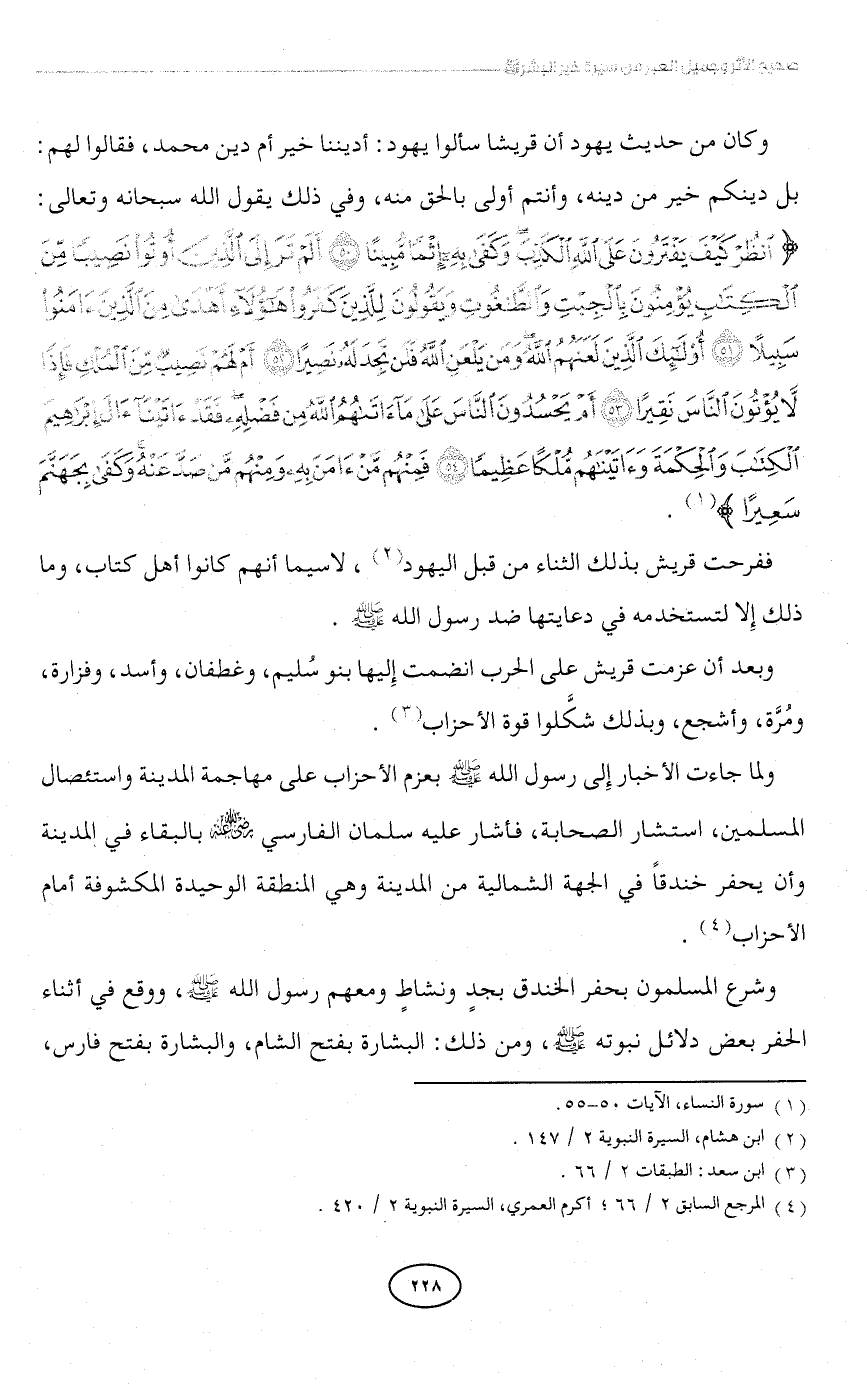 صحيح الأثر وجميل العبر من سيرة خير البشر ﷺ
وكان من حديث يهود أن قريشا سألوا يهود : أديننا خير أم دين محمد، فقالوا لهم :
بل دينكم خير من دينه، وأنتم أولى بالحق منه، وفي ذلك يقول الله سبحانه وتعالى :
﴿ ٱنظُرۡ كَيۡفَ يَفۡتَرُونَ عَلَى ٱللَّهِ ٱلۡكَذِبَۖ وَكَفَىٰ بِهِۦٓ إِثۡمٗا مُّبِينًا ٥٠ أَلَمۡ تَرَ إِلَى ٱلَّذِينَ أُوتُواْ نَصِيبٗا مِّنَ
ٱلۡكِتَٰبِ يُؤۡمِنُونَ بِٱلۡجِبۡتِ وَٱلطَّٰغُوتِ وَيَقُولُونَ لِلَّذِينَ كَفَرُواْ هَٰٓؤُلَآءِ أَهۡدَىٰ مِنَ ٱلَّذِينَ ءَامَنُواْ
سَبِيلًا ٥١ أُوْلَٰٓئِكَ ٱلَّذِينَ لَعَنَهُمُ ٱللَّهُۖ وَمَن يَلۡعَنِ ٱللَّهُ فَلَن تَجِدَ لَهُۥ نَصِيرًا ٥٢ أَمۡ لَهُمۡ نَصِيبٞ مِّنَ ٱلۡمُلۡكِ فَإِذٗا
لَّا يُؤۡتُونَ ٱلنَّاسَ نَقِيرًا ٥٣ أَمۡ يَحۡسُدُونَ ٱلنَّاسَ عَلَىٰ مَآ ءَاتَىٰهُمُ ٱللَّهُ مِن فَضۡلِهِۦۖ فَقَدۡ ءَاتَيۡنَآ ءَالَ إِبۡرَٰهِيمَ
ٱلۡكِتَٰبَ وَٱلۡحِكۡمَةَ وَءَاتَيۡنَٰهُم مُّلۡكًا عَظِيمٗا ٥٤ فَمِنۡهُم مَّنۡ ءَامَنَ بِهِۦ وَمِنۡهُم مَّن صَدَّ عَنۡهُۚ وَكَفَىٰ بِجَهَنَّمَ
سَعِيرًا ﴾(١) .
ففرحت قريش بذلك الثناء من قبل اليهود(٢) ، لاسيما أنهم كانوا أهل كتاب، وما
ذلك إلا لتستخدمه في دعايتها ضد رسول الله ﷺ .
وبعد أن عزمت قريش على الحرب انضمت إليها بنو سُليم، وغطفان، وأسد، وفزارة،
ومُرَّة، وأشجع، وبذلك شكَّلوا قوة الأحزاب(٣) .
ولما جاءت الأخبار إلى رسول الله ﷺ بعزم الأحزاب على مهاجمة المدينة واستئصال
المسلمين، استشار الصحابة، فأشار عليه سلمان الفارسي رضي الله عنه بالبقاء في المدينة
وأن يحفر خندقاً في الجهة الشمالية من المدينة وهي المنطقة الوحيدة المكشوفة أمام
الأحزاب(٤) .
وشرع المسلمون بحفر الخندق بجدٍ ونشاطٍ ومعهم رسول الله ﷺ ، ووقع في أثناء
الحفر بعض دلائل نبوته ﷺ ، ومن ذلك : البشارة بفتح الشام، والبشارة بفتح فارس،
(١) سورة النساء، الآيات ٥٠-٥٥.
(٢) ابن هشام، السيرة النبوية ٢ / ١٤٧ .
(٣) ابن سعد : الطبقات ٢ / ٦٦ .
(٤) المرجع السابق ٢ / ٦٦ ؛ أكرم العمري، السيرة النبوية ٢ / ٤٢٠ .
٢٢٨